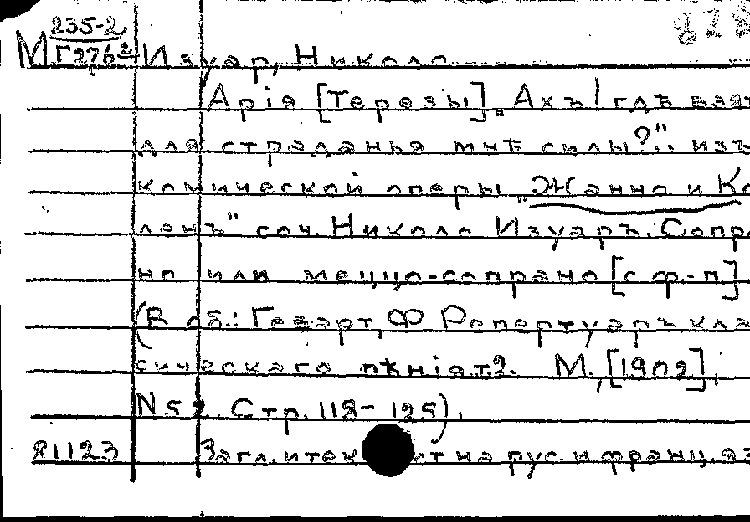 235-2
М Г276² Изуар, Николо
Арія [Терезы] „Ахъ! гдѣ взя
для страданья мнѣ силы?".. изъ
комической оперы „Жанно и Ко
ленъ" соч. Николо Изуаръ. Сопра
но или меццо-сопрано [с ф.-п]
(В сб.: Геварт, Ф Репертуаръ клас
сическаго пѣнія. т2. М., [1902],
N 52. Стр. 118-125).
81123 Загл. и тек т на рус. и франц. яз